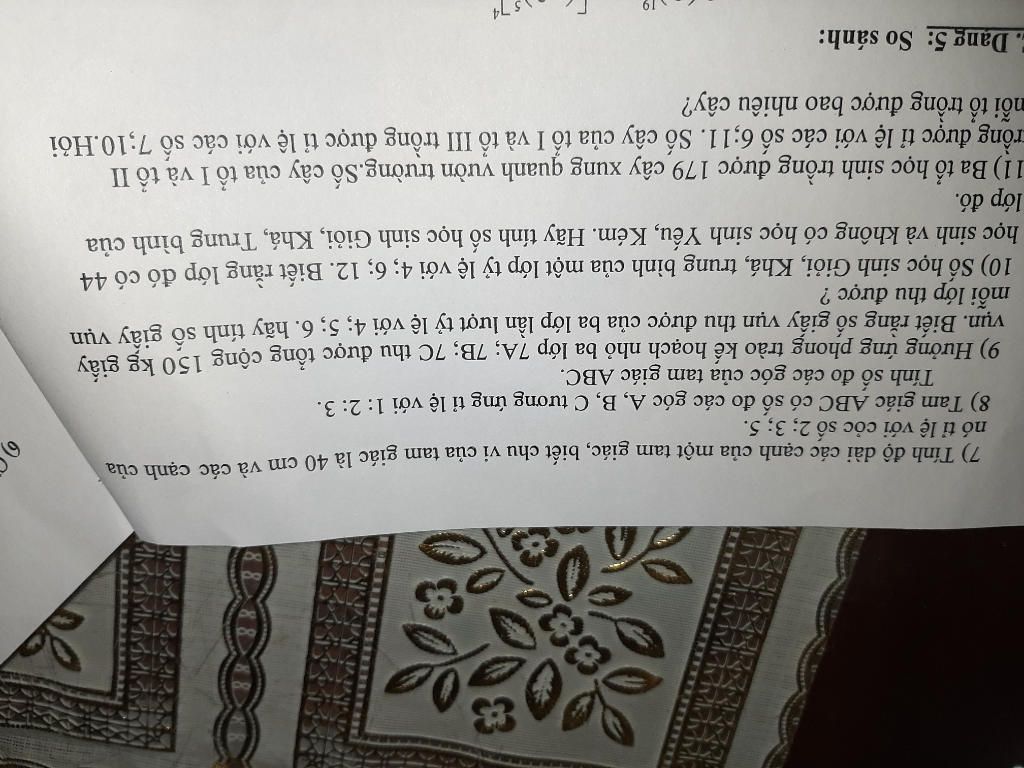 7) Tính độ dài các cạnh của một tam giác, biết chu vi của tam giác là 40 cm và các cạnh của
nó tỉ lệ với cốc số 2; 3; 5.
8) Tam giác ABC có số đo các góc A, B, C tương ứng tỉ lệ với 1: 2: 3.
Tính số đo các góc của tam giác ABC.
9) Hưởng ứng phong trào kế hoạch nhỏ ba lớp 7A; 7B; 7C thu được tổng cộng 150 kg giấy
vụn. Biết rằng số giấy vụn thu được của ba lớp lần lượt tỷ lệ với 4; 5; 6. hãy tính số giấy vụn
mỗi lớp thu được ?
10) Số học sinh Giỏi, Khá, trung bình của một lớp tỷ lệ với 4; 6; 12. Biết rằng lớp đó có 44
học sinh và không có học sinh Yếu, Kém. Hãy tính số học sinh Giỏi, Khá, Trung bình của
lớp đó.
11) Ba tổ học sinh trồng được 179 cây xung quanh vườn trường.Số cây của tổ I và tổ II
trồng được tỉ lệ với các số 6;11. Số cây của tổ I và tổ III trồng được tỉ lệ với các số 7;10.Hỏi
mỗi tổ trồng được bao nhiêu cây?
Dạng 5: So sánh: